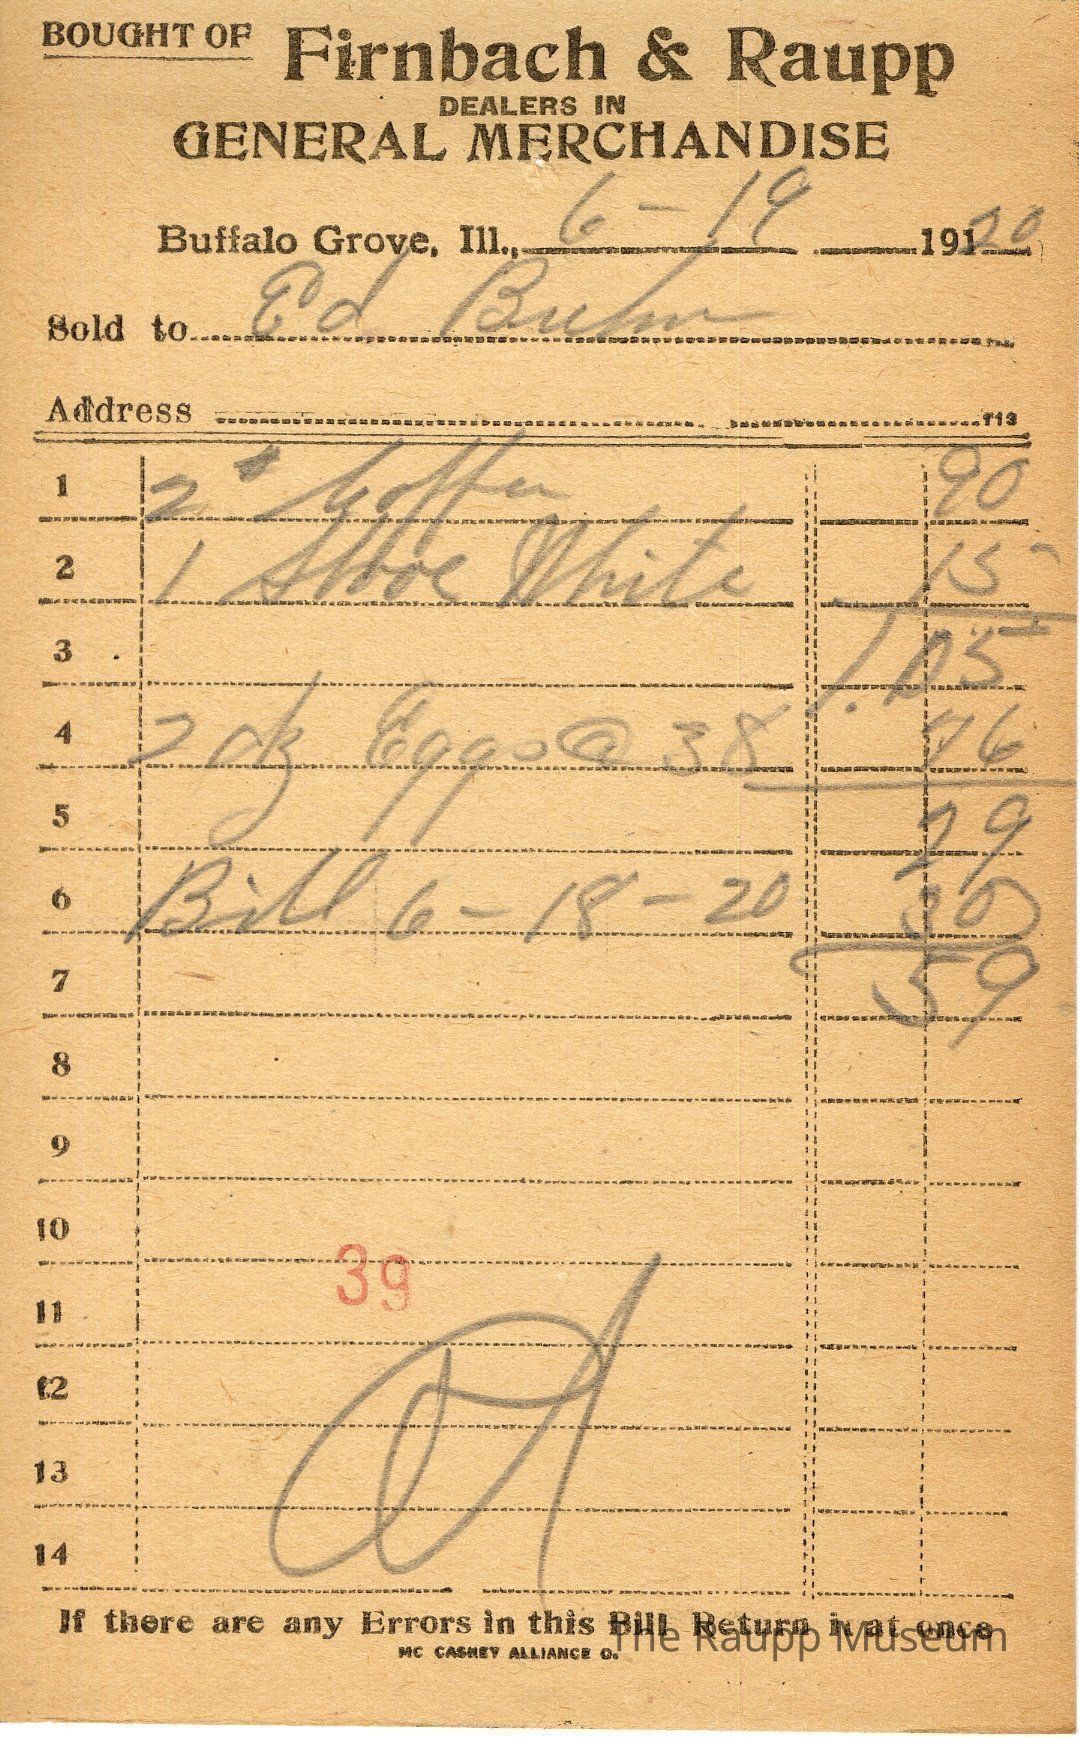 BOUGHT OF Firnbach & Raupp
DEALERS IN
GENERAL MERCHANDISE
Buffalo Grove, Ill., 6-19 19120
Sold to Ed
Address 113
1 2# Coffee 90
2 1 Shoe White 15
3 1.05
4 2 dz Eggs @ 38 76
5 29
6 Bill 6-18-20 30
7 59
8
9
10
39
11
12
13
14
If there are any Errors in this Bill Return it at once
MC CASKEY ALLIANCE O.
The Raupp Museum